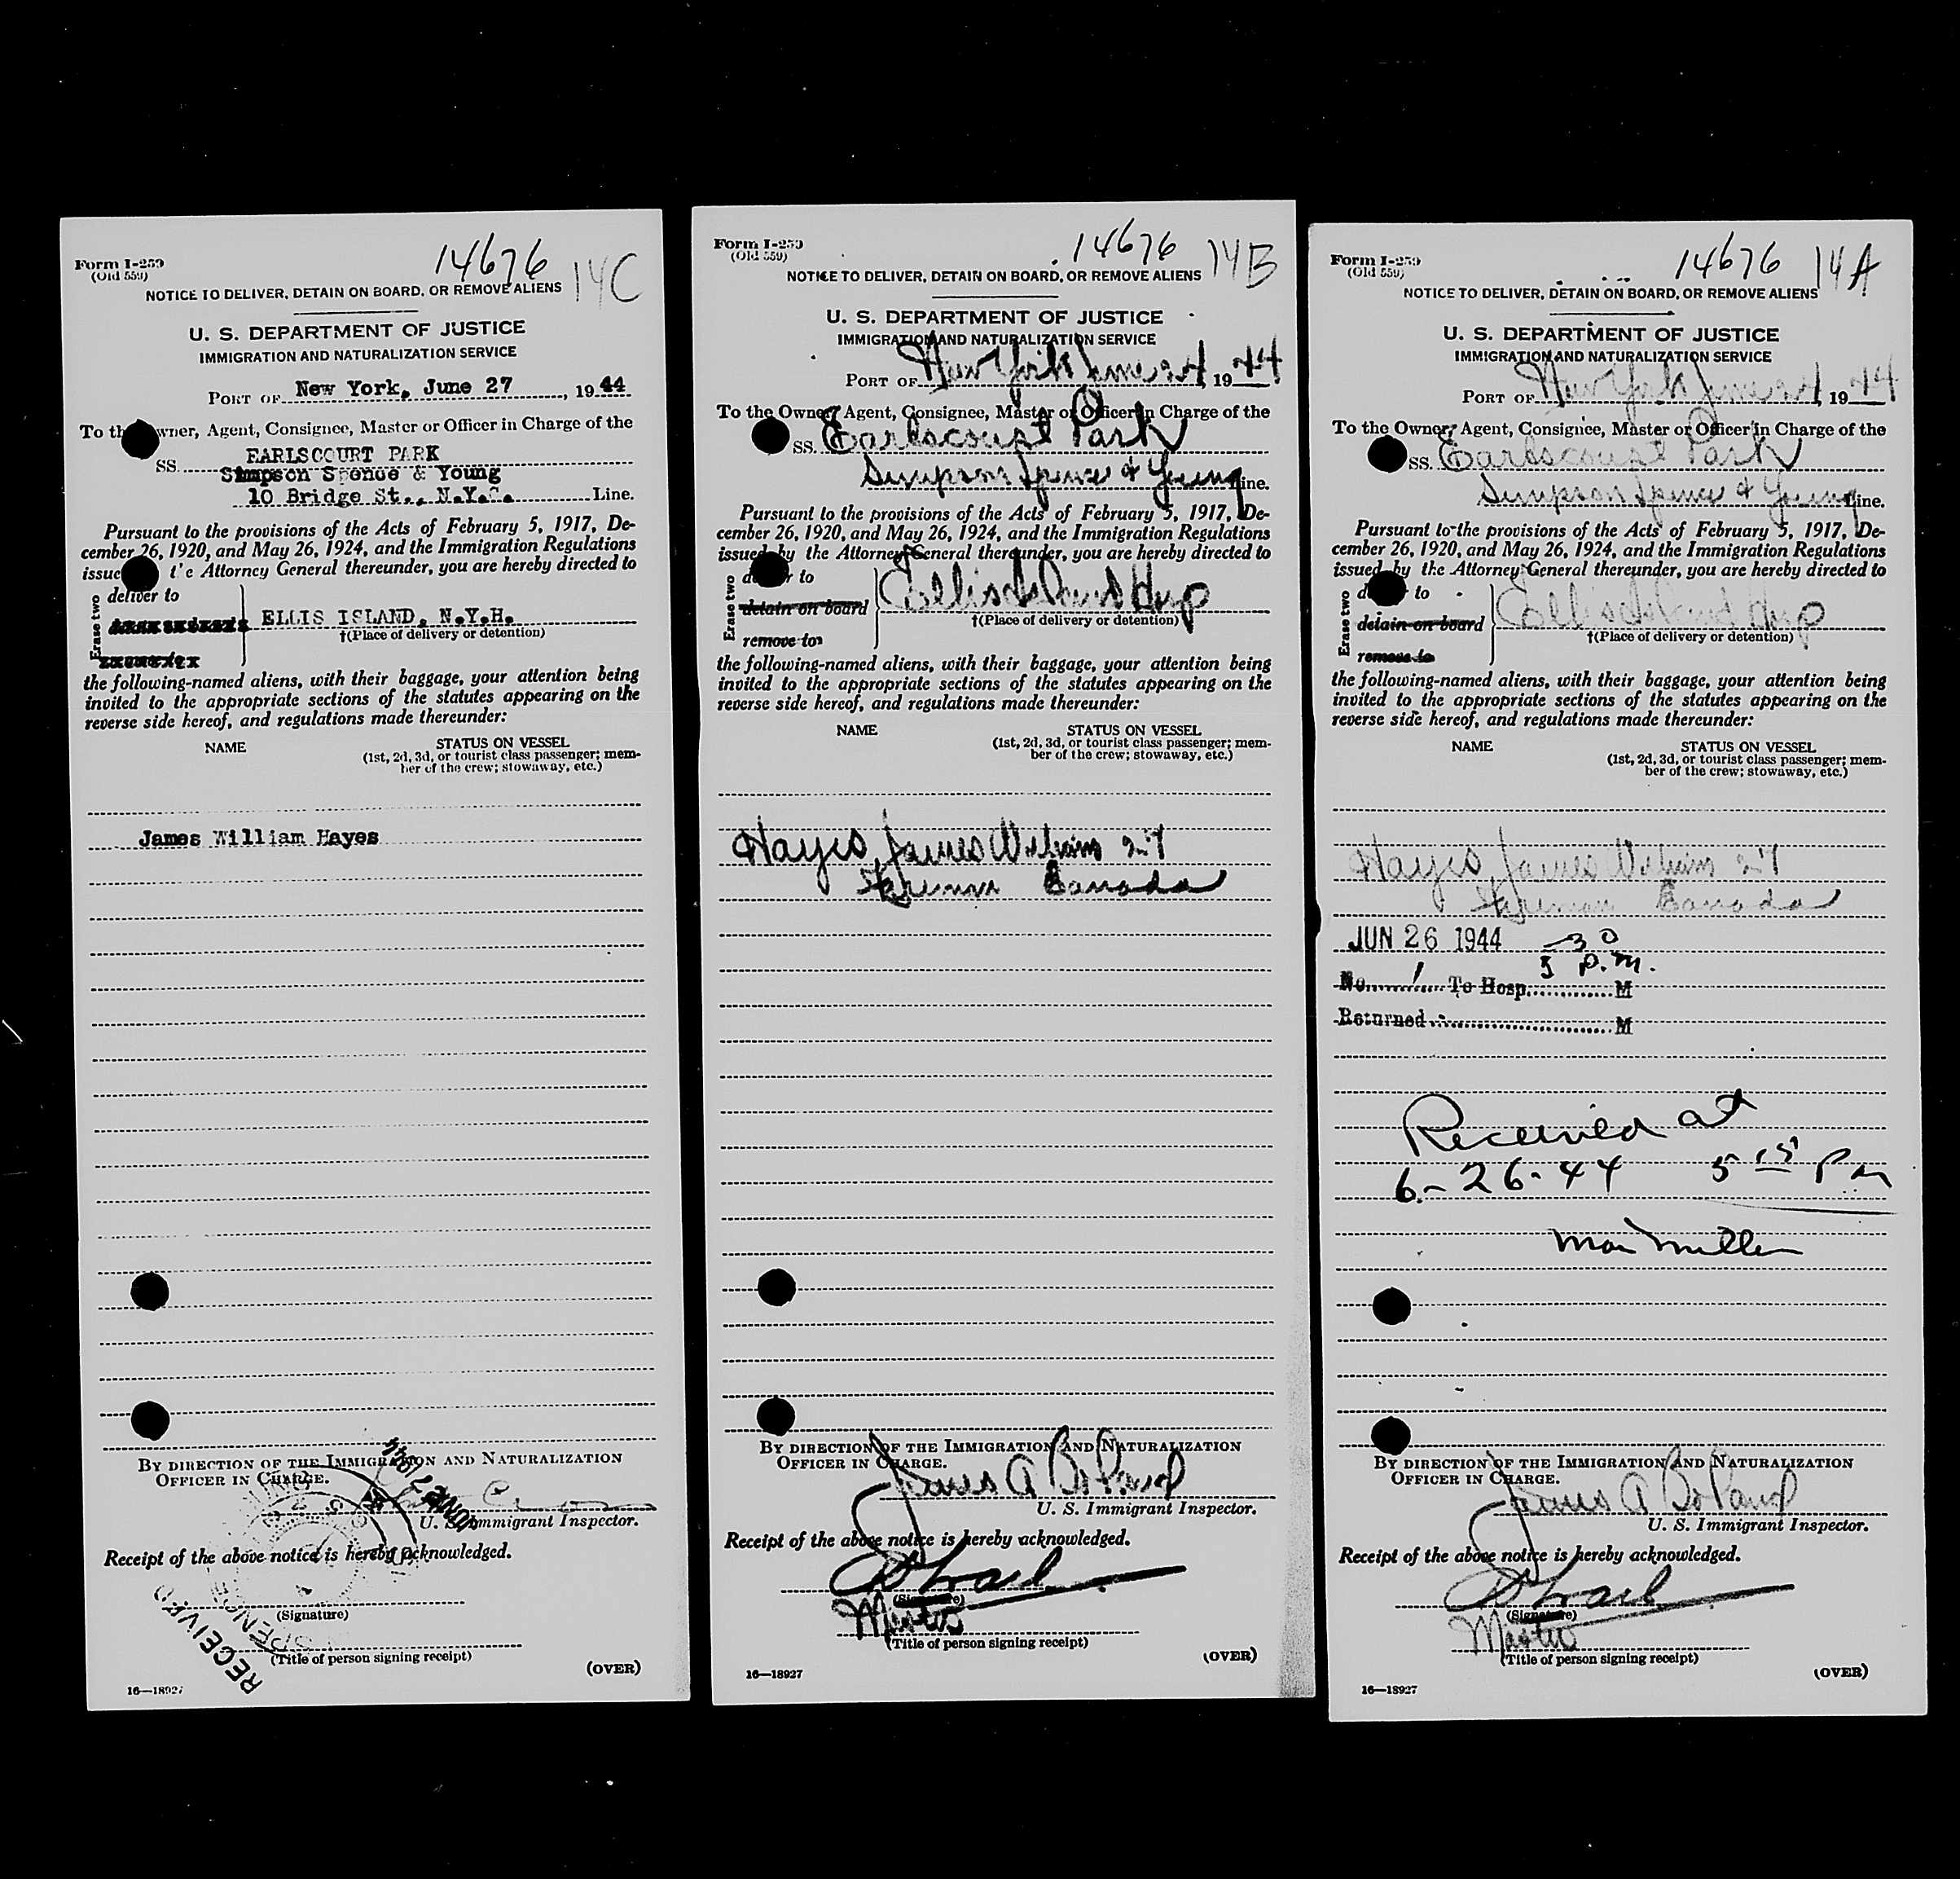 Form I-259
(Old 559)
14676 14C
NOTICE TO DELIVER, DETAIN ON BOARD, OR REMOVE ALIENS
U. S. DEPARTMENT OF JUSTICE
IMMIGRATION AND NATURALIZATION SERVICE
PORT OF New York, June 27, 1944
To the Owner, Agent, Consignee, Master or Officer in Charge of the
SS. EARLSCOURT PARK
Simpson Spence & Young
10 Bridge St., N.Y.C. Line.
Pursuant to the provisions of the Acts of February 5, 1917, De-
cember 26, 1920, and May 26, 1924, and the Immigration Regulations
issued the Attorney General thereunder, you are hereby directed to
Erase two
deliver to
ELLIS ISLAND, N.Y.H.
†(Place of delivery or detention)
the following-named aliens, with their baggage, your attention being
invited to the appropriate sections of the statutes appearing on the
reverse side hereof, and regulations made thereunder:
NAME STATUS ON VESSEL
(1st, 2d, 3d, or tourist class passenger; mem-
ber of the crew; stowaway, etc.)
James William Hayes
BY DIRECTION OF THE IMMIGRATION AND NATURALIZATION
OFFICER IN CHARGE.
U. S. Immigrant Inspector.
Receipt of the above notice is hereby acknowledged.
(Signature)
RECEIVED
(Title of person signing receipt)
(OVER)
16—18927
Form I-259
(Old 559)
14676 14B
NOTICE TO DELIVER, DETAIN ON BOARD, OR REMOVE ALIENS
U. S. DEPARTMENT OF JUSTICE
IMMIGRATION AND NATURALIZATION SERVICE
PORT OF New York June 24, 1944
To the Owner, Agent, Consignee, Master or Officer in Charge of the
SS. Earlscourt Park
Simpson Spence & Young Line.
Pursuant to the provisions of the Acts of February 5, 1917, De-
cember 26, 1920, and May 26, 1924, and the Immigration Regulations
issued by the Attorney General thereunder, you are hereby directed to
Erase two
to
detain on board
Ellis Island Hosp
†(Place of delivery or detention)
remove to
the following-named aliens, with their baggage, your attention being
invited to the appropriate sections of the statutes appearing on the
reverse side hereof, and regulations made thereunder:
NAME STATUS ON VESSEL
(1st, 2d, 3d, or tourist class passenger; mem-
ber of the crew; stowaway, etc.)
Hayes, James William 27
Fireman Canada
BY DIRECTION OF THE IMMIGRATION AND NATURALIZATION
OFFICER IN CHARGE.
James A Boland
U. S. Immigrant Inspector.
Receipt of the above notice is hereby acknowledged.
(Signature)
Master
(Title of person signing receipt)
(OVER)
16—18927
Form I-259
(Old 559)
14676 14A
NOTICE TO DELIVER, DETAIN ON BOARD, OR REMOVE ALIENS
U. S. DEPARTMENT OF JUSTICE
IMMIGRATION AND NATURALIZATION SERVICE
PORT OF New York June 24, 1944
To the Owner, Agent, Consignee, Master or Officer in Charge of the
SS. Earlscourt Park
Simpson Spence & Young Line.
Pursuant to the provisions of the Acts of February 5, 1917, De-
cember 26, 1920, and May 26, 1924, and the Immigration Regulations
issued by the Attorney General thereunder, you are hereby directed to
Erase two
to
detain on board
Ellis Island Hosp
†(Place of delivery or detention)
remove to
the following-named aliens, with their baggage, your attention being
invited to the appropriate sections of the statutes appearing on the
reverse side hereof, and regulations made thereunder:
NAME STATUS ON VESSEL
(1st, 2d, 3d, or tourist class passenger; mem-
ber of the crew; stowaway, etc.)
Hayes, James William 27
Fireman Canada
JUN 26 1944 30
5 p.m.
No. 1 To Hosp. M
Returned M
Received at
6-26-44 5 15 Pm
Miller
BY DIRECTION OF THE IMMIGRATION AND NATURALIZATION
OFFICER IN CHARGE.
James A Boland
U. S. Immigrant Inspector.
Receipt of the above notice is hereby acknowledged.
(Signature)
Master
(Title of person signing receipt)
(OVER)
16—18927